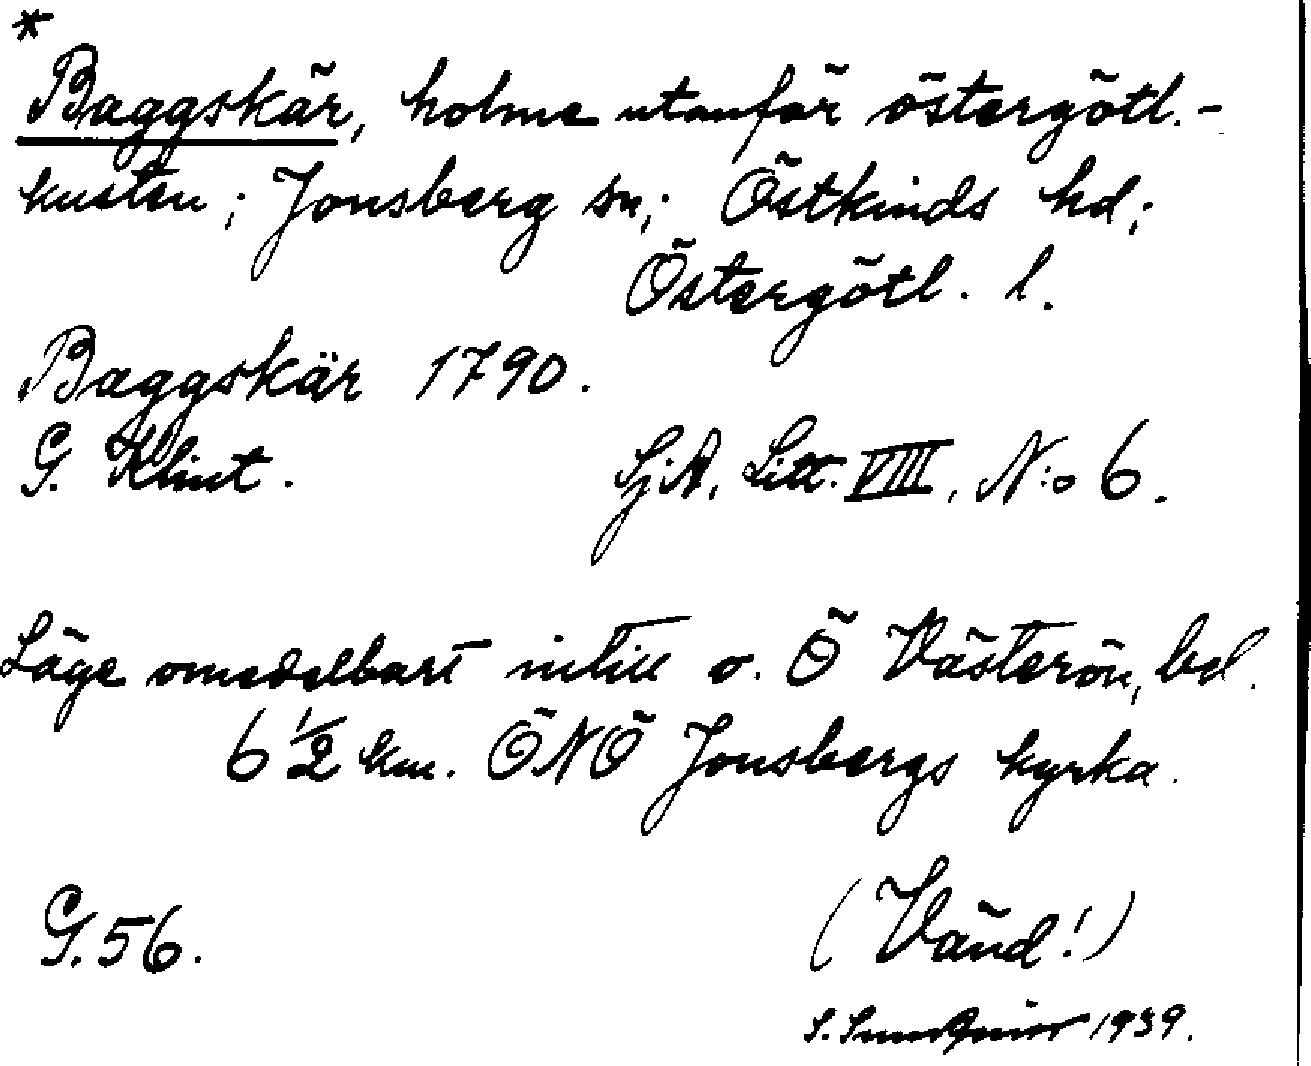 *
Baggskär, holme utanför östergötl.-
kusten; Jonsberg sn; Östkinds hd;
Östergötl. l.
Baggskär 1790.
G. Klint. SjA, Litt. VIII, N:o 6.
Läge omedelbart intill o. Ö Västerön, bel.
6 1/2 km. ÖNÖ Jonsbergs kyrka.
G. 56. (Vänd!)
S. 1939.